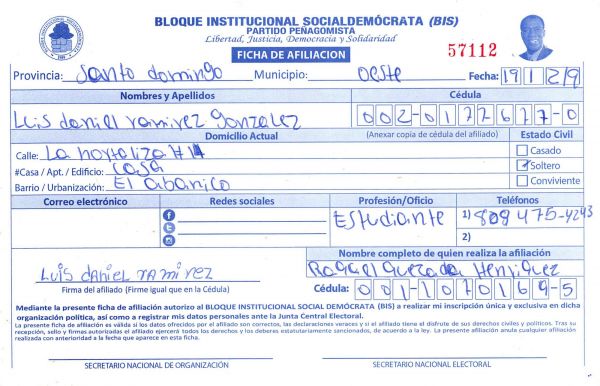 BLOQUE INSTITUCIONAL SOCIALDEMÓCRATA (BIS)
PARTIDO PEÑAGOMISTA
Libertad, Justicia, Democracia y Solidaridad
FICHA DE AFILIACION
57112
Provincia: Santo domingo Municipio: oeste Fecha: 19 12 9
Nombres y Apellidos Cédula
Luis daniel ramirez gonzalez 002-0177677-0
Domicilio Actual (Anexar copia de cédula del afiliado) Estado Civil
Calle: La hortaliza #14 Casado
#Casa / Apt. / Edificio: casa Soltero
Barrio / Urbanización: El abanico Conviviente
Correo electrónico Redes sociales Profesión/Oficio Teléfonos
Estudiante 1) 809 475-4243
2)
Nombre completo de quien realiza la afiliación
Luis daniel ramirez Raquel quezada Henriquez
Firma del afiliado (Firme igual que en la Cédula) Cédula: 001-1070169-5
Mediante la presente ficha de afiliación autorizo al BLOQUE INSTITUCIONAL SOCIAL DEMÓCRATA (BIS) a realizar mi inscripción única y exclusiva en dicha
organización política, así como a registrar mis datos personales ante la Junta Central Electoral.
La presente ficha de afiliación es válida si los datos ofrecidos por el afiliado son correctos, las declaraciones veraces y si el afiliado tiene el disfrute de sus derechos civiles y políticos. Tras su
recepción, sello y firmas autorizadas el afiliado ejercerá todos los derechos y los deberes estatutariamente sancionados, de acuerdo a la ley. La presente afiliación anula cualquier afiliación
realizada con anterioridad a la fecha que aparece en esta ficha.
SECRETARIO NACIONAL DE ORGANIZACIÓN SECRETARIO NACIONAL ELECTORAL